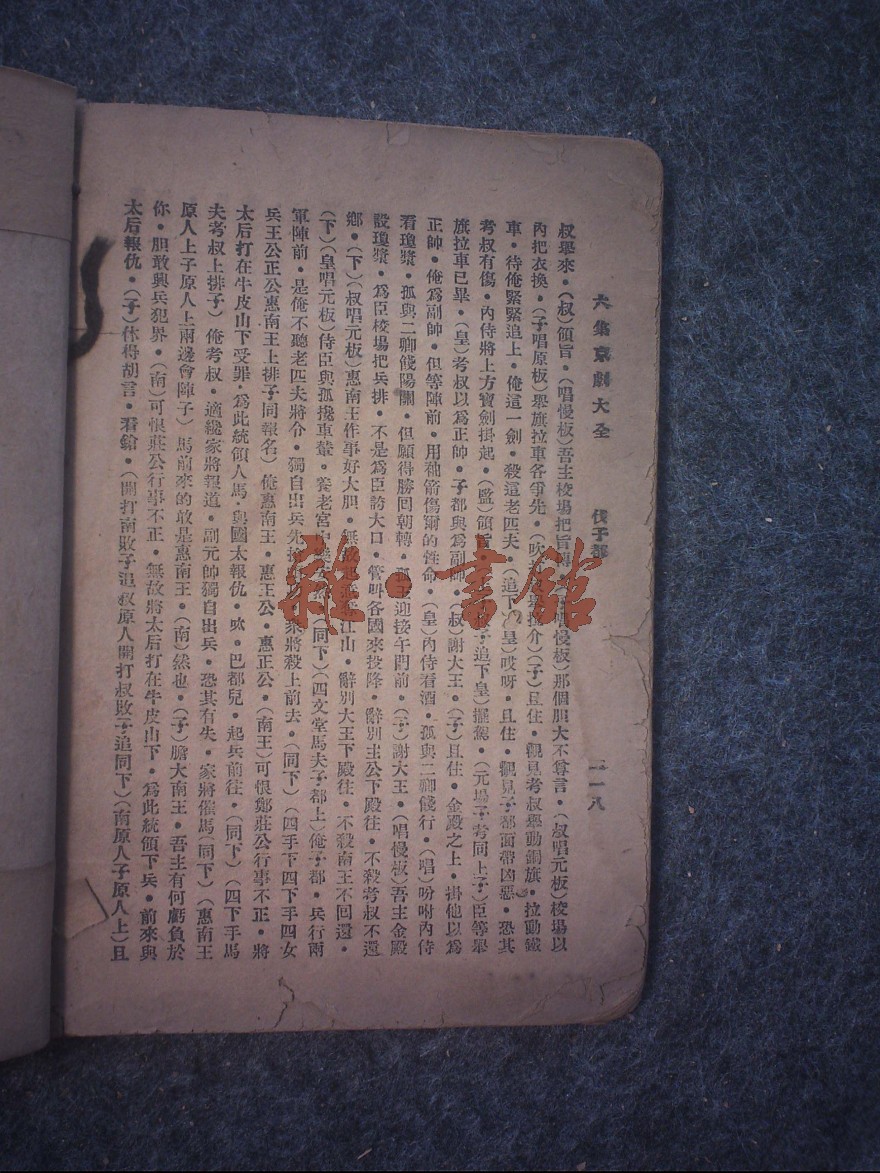 大集京劇大全　伐子都　二一八
叔舉來・(叔)領旨・(唱慢板)吾主校場把旨傳・唱慢板)那個胆大不尊言・(叔唱元板)校場以
內把衣換・(子唱原板)舉旗拉車各爭先・(吹介)(子)且住・觀見考叔舉動鋼旗・拉動鐵
車・待俺緊緊追上・俺這一劍・殺這老匹夫・追下皇)哎呀・且住・觀見子都面帶凶惡・恐其
考叔有傷・內侍將上方寶劍掛起・(監)領旨子追下皇)擺駕・(元場子考同上子)臣等舉
旗拉車已畢・(皇)考叔以爲正帥・子都與爲副帥・(叔)謝大王・(子)且住・金殿之上・掛他以爲
正帥・俺爲副帥・但等陣前・用秞箭傷爾的性命・(皇)內侍看酒・孤與二卿餞行・(唱)吩咐內侍
看瓊漿・孤與二卿餞陽關・但願得勝回朝轉・孤王迎接午門前・(子)謝大王・(唱慢板)吾主金殿
設瓊漿・爲臣校場把兵排・不是爲臣誇大口・管叫各國來投降・辭別主公下殿往・不殺考叔不還
鄉・(下)(叔唱元板)惠南王作事好大胆・無故江山・辭別大王下殿往・不殺南王不回還・
(下)(皇唱元板)侍臣與孤攙車輦・養老宮中(同下)(四文堂馬夫子都上)俺子都・兵行兩
軍陣前・是俺不聽老匹夫將令・獨自出兵先衆將殺上前去・(同下)(四手下四下手四女
兵王公正公惠南王上排子同報名)俺惠南王・惠王公・惠正公・(南王)可恨鄭莊公行事不正・將
太后打在牛皮山下受罪・爲此統領人馬・與國太報仇・吹・巴都兒・起兵前往・(同下)(四下手馬
夫考叔上排子)俺考叔・適纔家將報道・副元帥獨自出兵・恐其有失・家將催馬(同下)(惠南王
原人上子原人上兩邊會陣子)馬前來的敢是惠南王・(南)然也・(子)膽大南王・吾主有何虧負於
你・胆敢興兵犯界・(南)可恨莊公行事不正・無故將太后打在牛皮山下・爲此統領下兵・前來與
太后報仇・(子)休得胡言・看鎗・(開打南敗子追叔原人開打叔敗子追同下)(南原人子原人上)且
雜・書舘